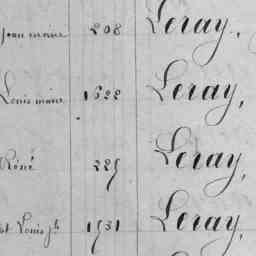 Jean marie 208 Leray,
Louis marie 1522 Leray,
Réné 225 Leray,
et Louis jh 1531 Leray,